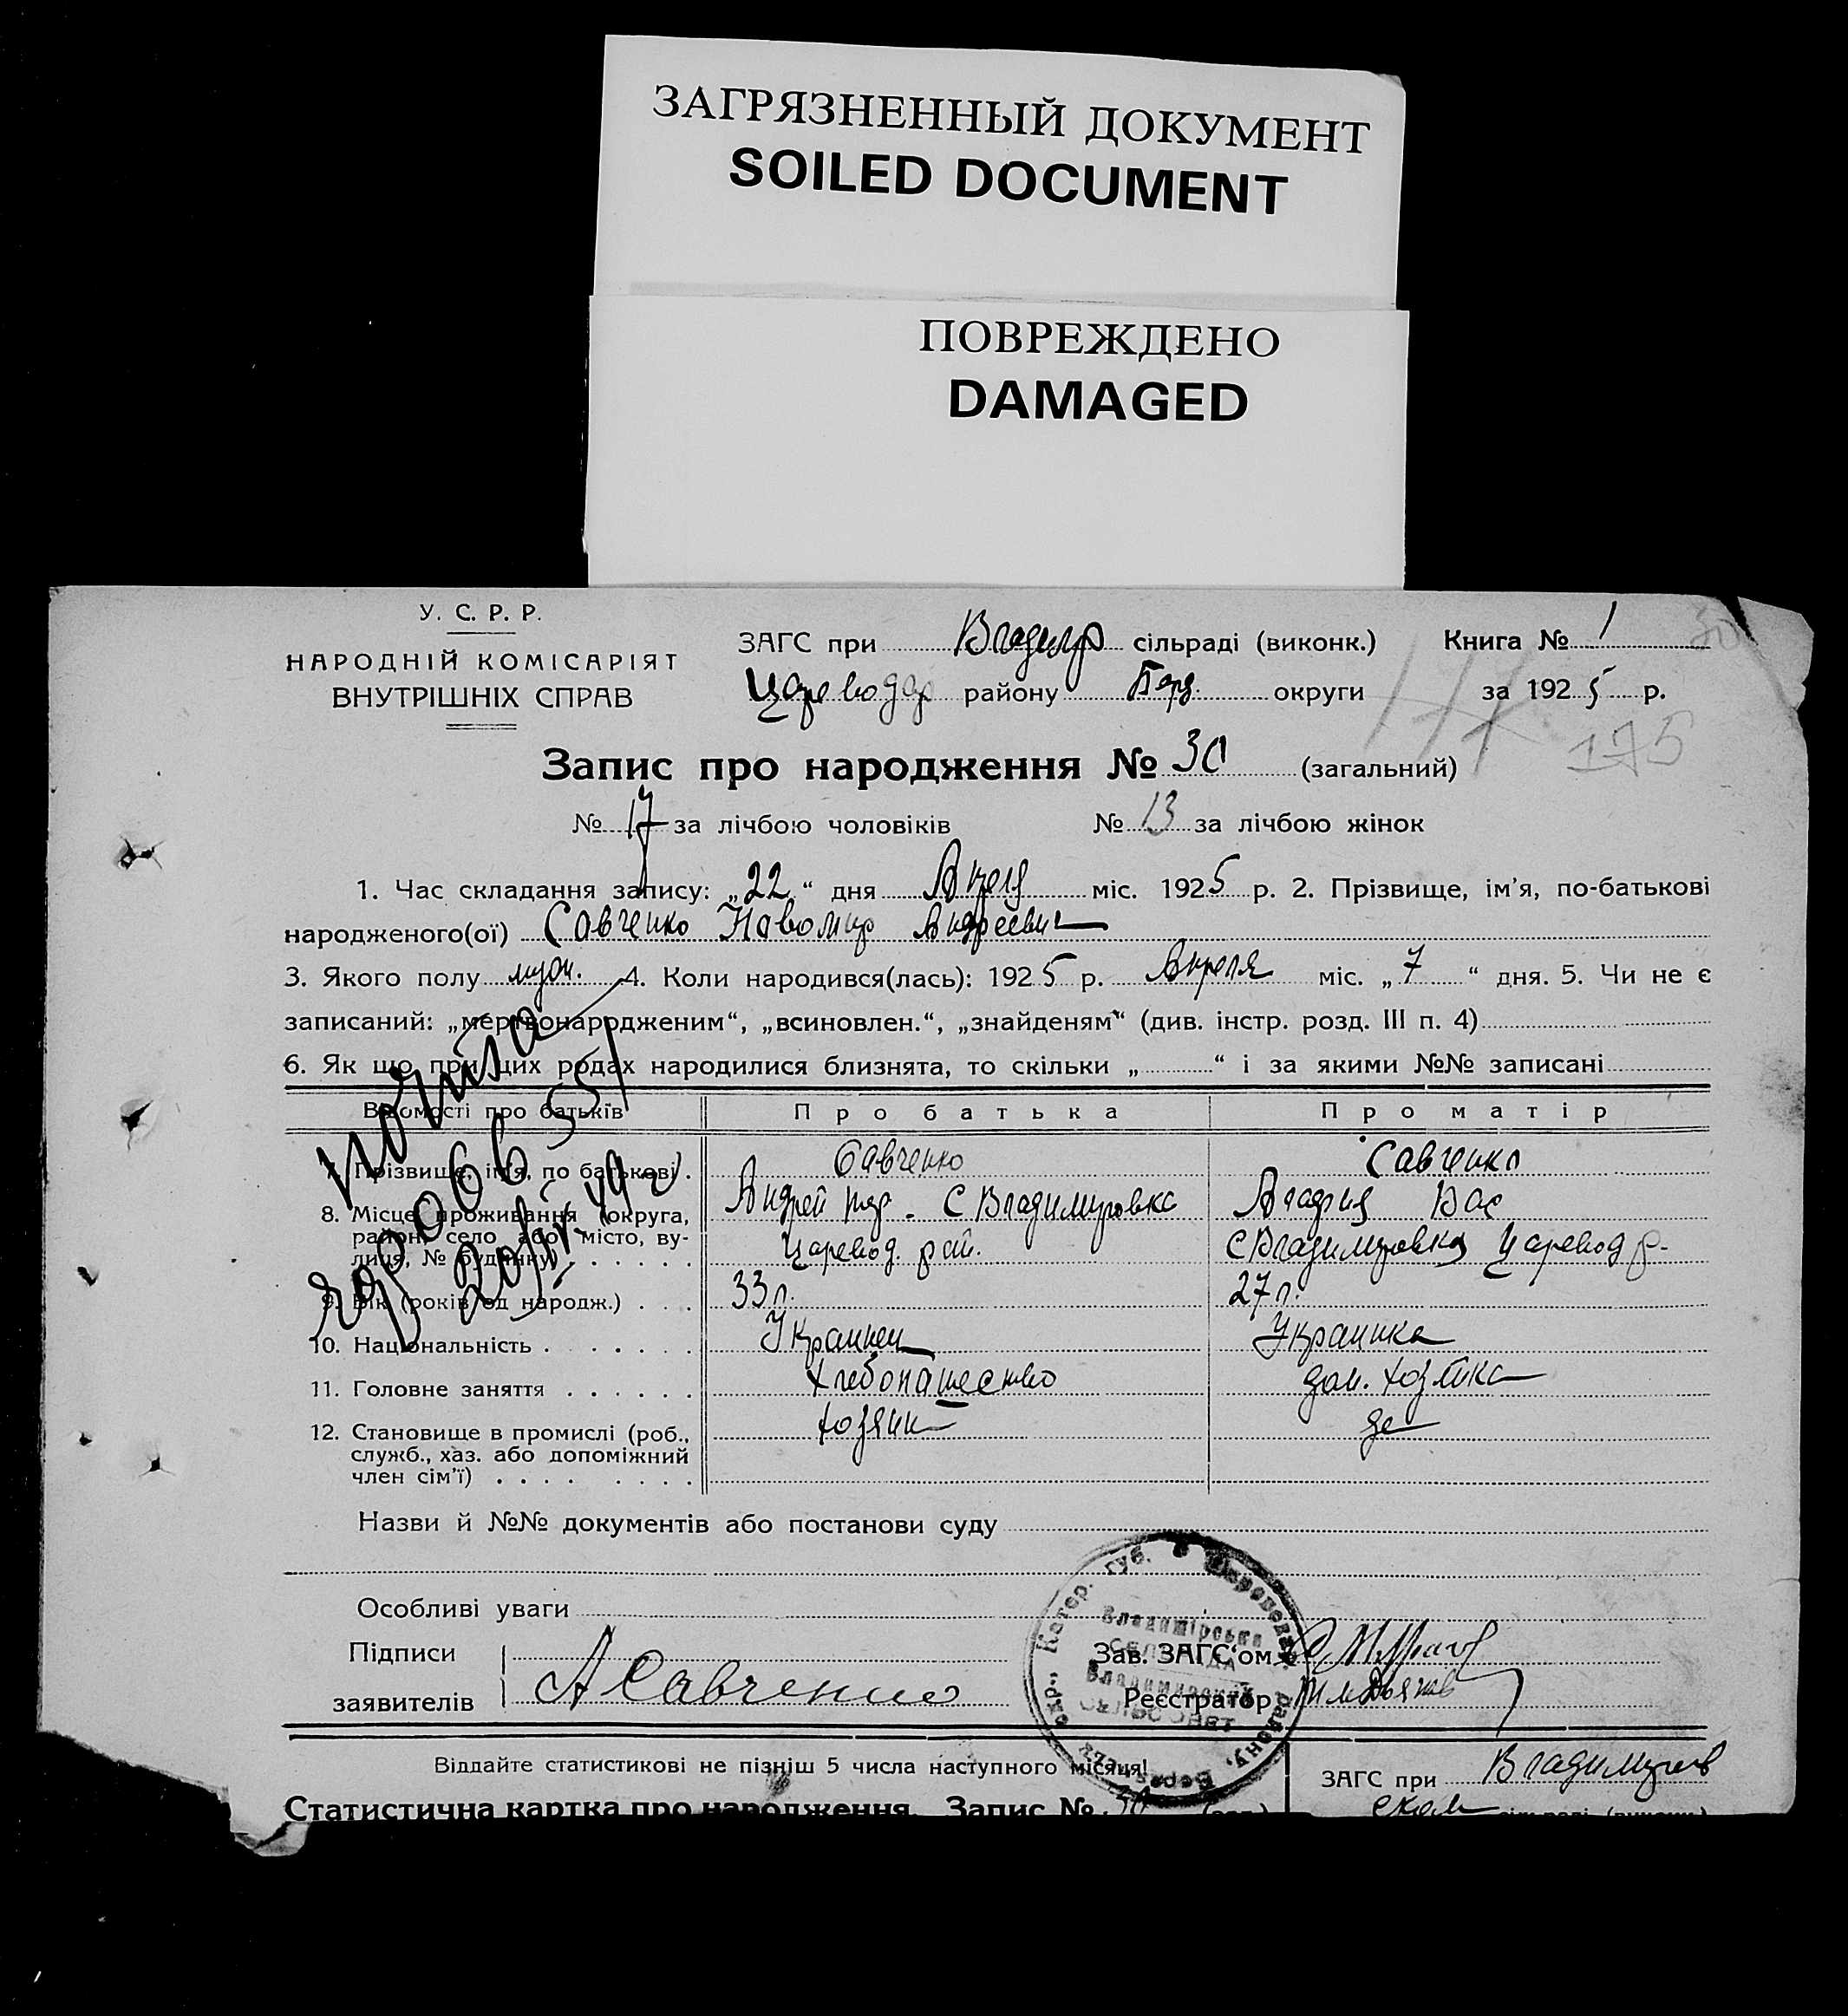 ЗАГРЯЗНЕННЫЙ ДОКУМЕНТ
SOILED DOCUMENT
ПОВРЕЖДЕНО
DAMAGED
У. С. Р. Р.
НАРОДНІЙ КОМІСАРІЯТ
ВНУТРІШНІХ СПРАВ
ЗАГС при Владимр сільраді (виконк.) Книга № 1
Цареводар району Берд. округи за 1925 р.
175
Запис про народження № 30 (загальний)
№ 17 за лічбою чоловіків № 13 за лічбою жінок
1. Час складання запису: „22“ дня Апреля міс. 1925 р. 2. Прізвище, ім’я, по-батькові
народженого(ої) Савченко Новомир Андреевич
3. Якого полу муж. 4. Коли народився(лась): 1925 р. Апреля міс. „7“ дня. 5. Чи не є
записаний: „мертвонародженим“, „всиновлен.“, „знайденям“ (див. інстр. розд. III п. 4)
6. Як що при цих родах народилися близнята, то скільки „ “ і за якими №№ записані
Відомості про батьків Про батька Про матір
7. Прізвище, ім’я, по батькові Савченко Савченко
8. Місце проживання (округа, Андрей С Владимировка Вас
район, село або місто, ву- Царевод. рай. С Владимировка Царевод р.
лиця, № будинку)
9. Вік (років од народж.) 33 л. 27 л.
10. Національність Украинец Украинка
11. Головне заняття Хлебопашество дом. хозяйка
12. Становище в промислі (роб., хозяин
служб., хаз. або допоміжний
член сім’ї)
Назви й №№ документів або постанови суду
Особливі уваги
Підписи
заявителів А Савченко
Зав. ЗАГС‘ом
Реєстратор
Катер. губ.
району,
Владимірська
Владимирский
Віддайте статистикові не пізніш 5 числа наступного місяця!
Статистична картка про народження. Запис № 30
ЗАГС при Владимиров
ском